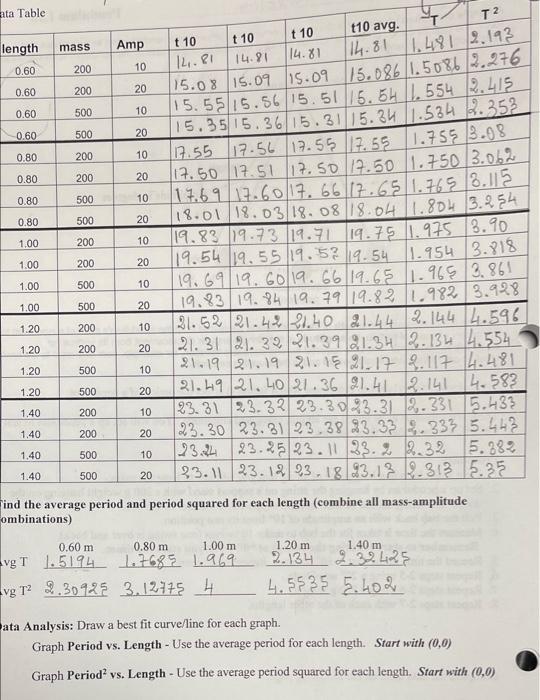 ata Table
length mass Amp t 10 t 10 t 10 t10 avg. T T²
0.60 200 10 14.81 14.81 14.81 14.81 1.481 2.193
0.60 200 20 15.08 15.09 15.09 15.086 1.5086 2.276
0.60 500 10 15.55 15.56 15.51 15.54 1.554 2.415
0.60 500 20 15.35 15.36 15.31 15.34 1.534 2.353
0.80 200 10 17.55 17.56 17.55 17.55 1.755 3.08
0.80 200 20 17.50 17.51 17.50 17.50 1.750 3.062
0.80 500 10 17.69 17.60 17.66 17.65 1.765 3.115
0.80 500 20 18.01 18.03 18.08 18.04 1.804 3.254
1.00 200 10 19.83 19.73 19.71 19.75 1.975 3.90
1.00 200 20 19.54 19.55 19.53 19.54 1.954 3.818
1.00 500 10 19.69 19.60 19.66 19.65 1.965 3.861
1.00 500 20 19.83 19.84 19.79 19.82 1.982 3.928
1.20 200 10 21.52 21.42 21.40 21.44 2.144 4.596
1.20 200 20 21.31 21.32 21.39 21.34 2.134 4.554
1.20 500 10 21.19 21.19 21.15 21.17 2.117 4.481
1.20 500 20 21.49 21.40 21.36 21.41 2.141 4.583
1.40 200 10 23.31 23.32 23.30 23.31 2.331 5.433
1.40 200 20 23.30 23.31 23.38 23.33 2.333 5.443
1.40 500 10 23.24 23.25 23.11 23.2 2.32 5.382
1.40 500 20 23.11 23.12 23.18 23.13 2.313 5.35
ind the average period and period squared for each length (combine all mass-amplitude
ombinations)
0.60 m 0.80 m 1.00 m 1.20 m 1.40 m
vg T 1.5194 1.7685 1.969 2.134 2.32425
vg T² 2.30925 3.12775 4 4.5535 5.402
ata Analysis: Draw a best fit curve/line for each graph.
Graph Period vs. Length - Use the average period for each length. Start with (0,0)
Graph Period² vs. Length - Use the average period squared for each length. Start with (0,0)